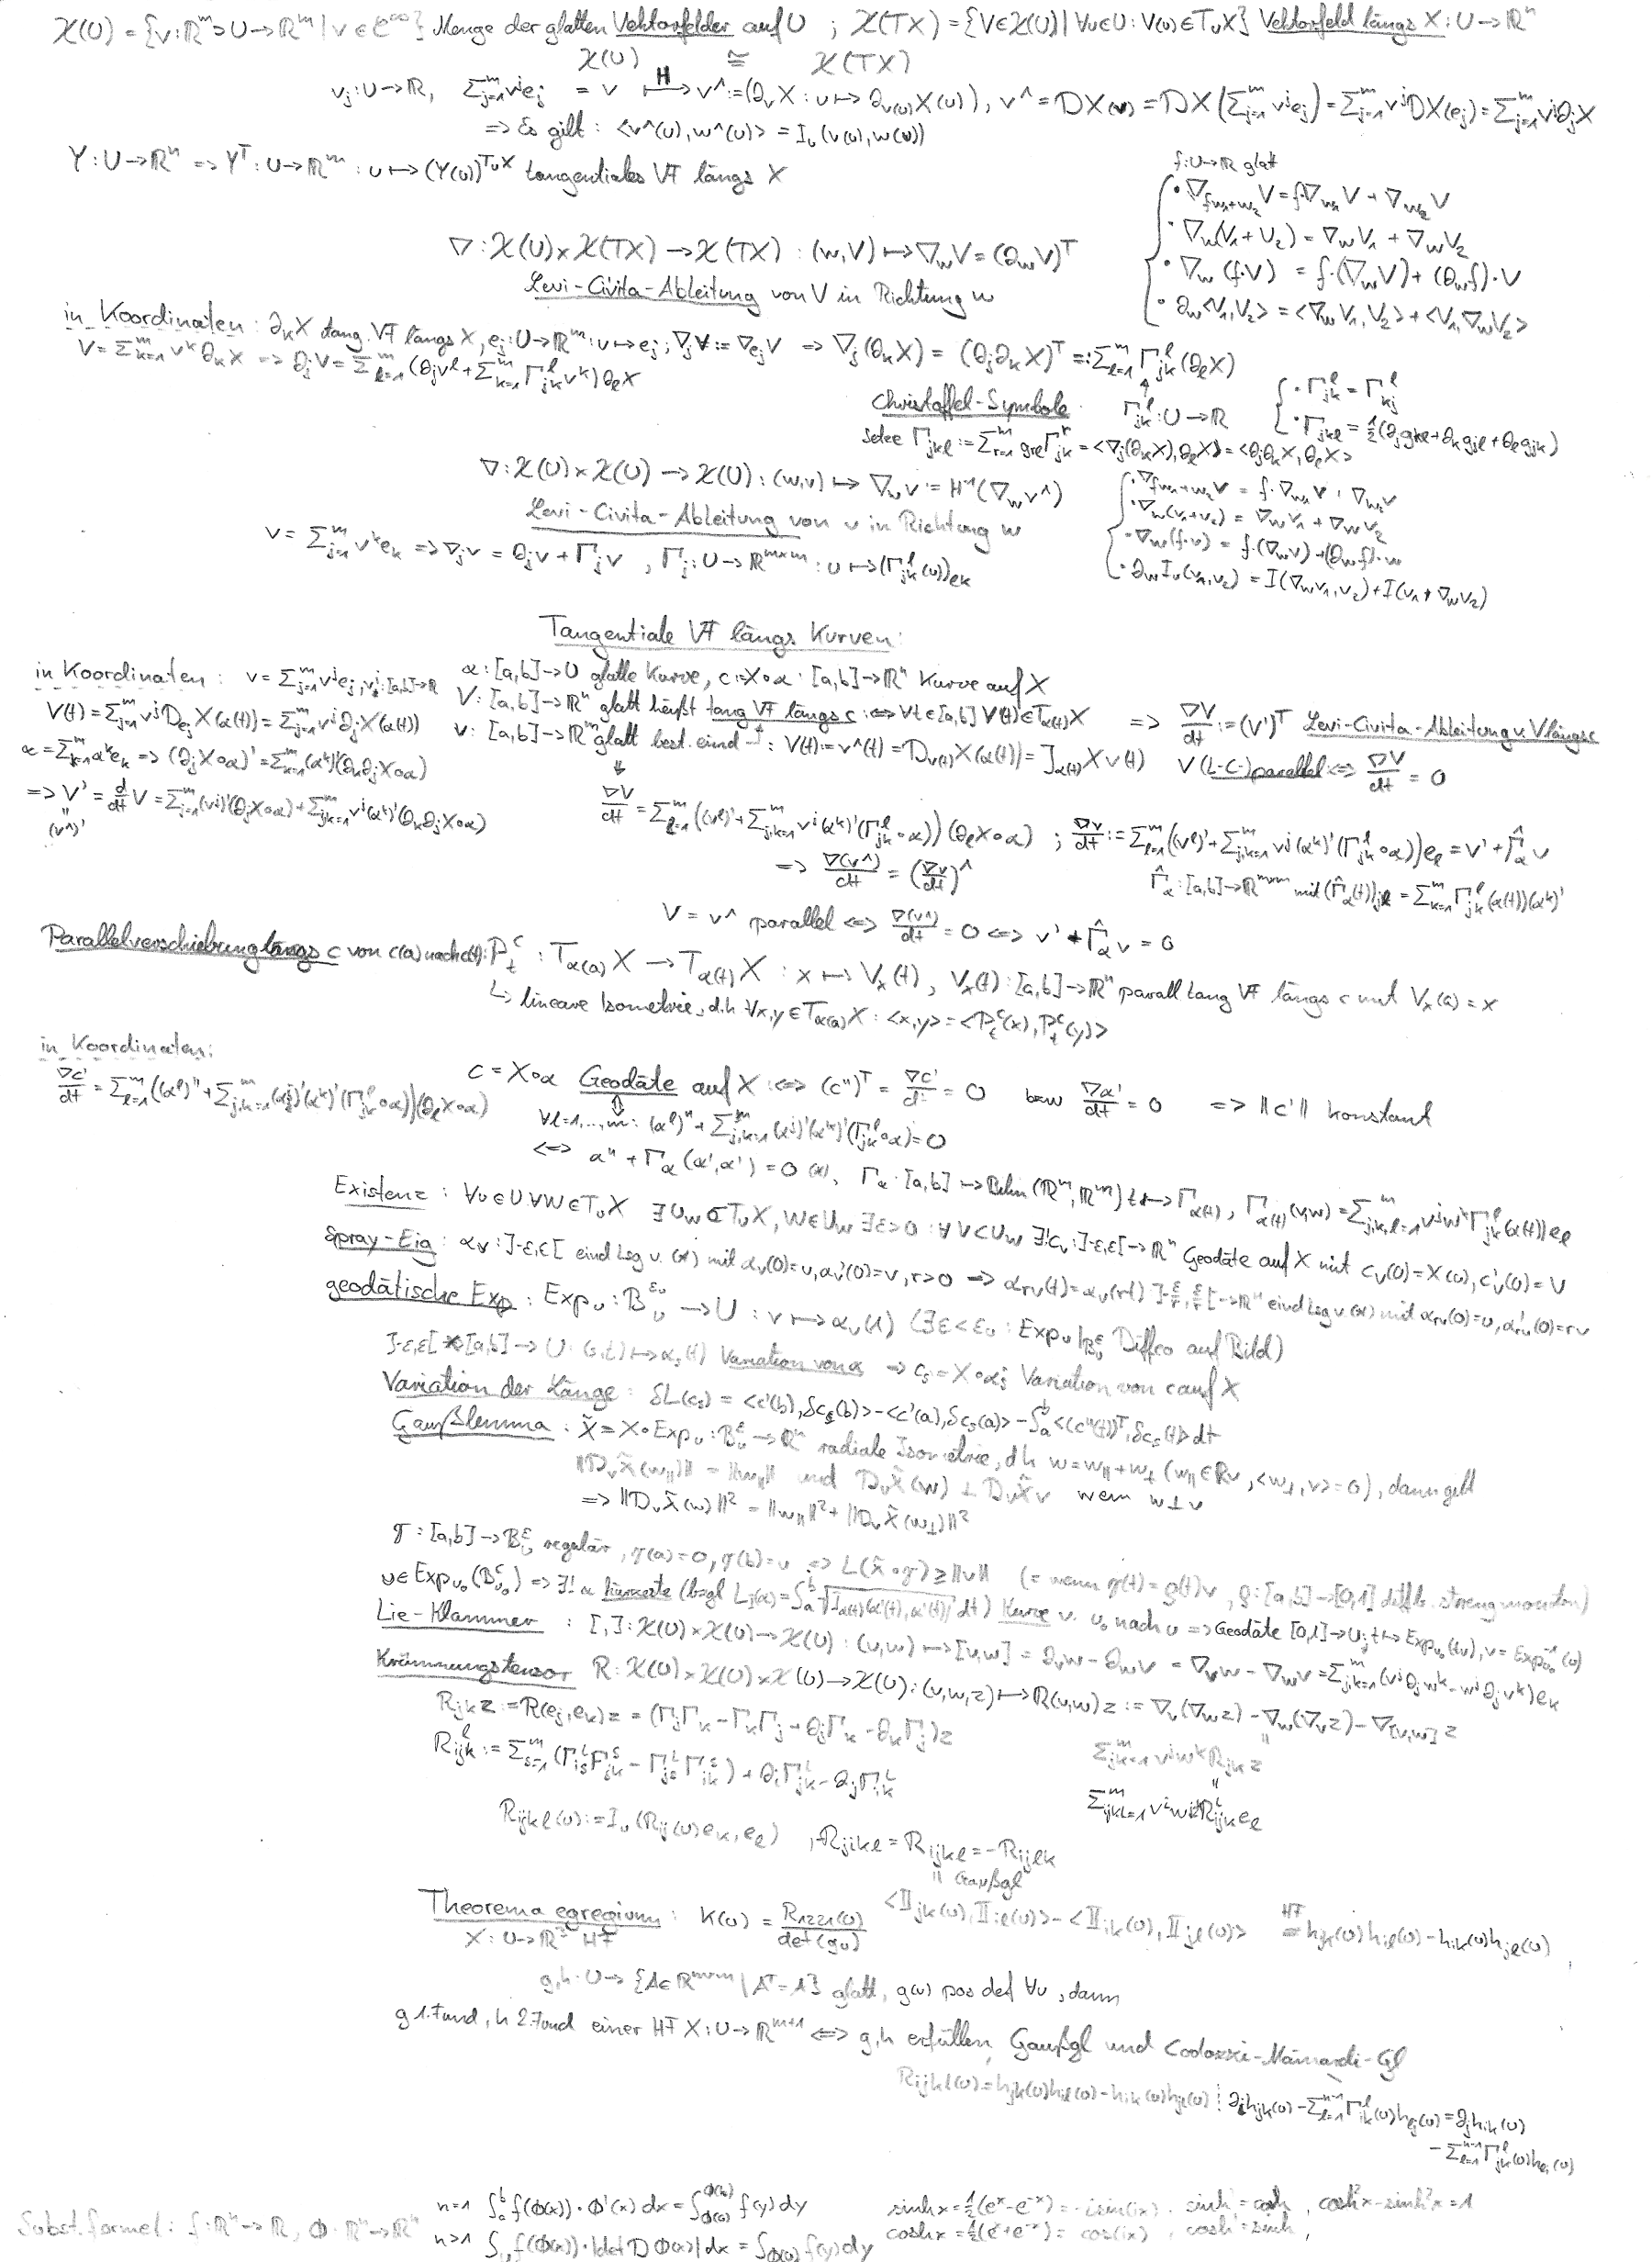 𝒳(U) = {v: ℝᵐ ⊃ U → ℝᵐ | v ∈ C^∞} Menge der glatten Vektorfelder auf U ; 𝒳(TX) = {V∈𝒳(U) | ∀u∈U: V(u)∈TᵤX} Vektorfeld längs X: U→ℝⁿ
𝒳(U) ≅ 𝒳(TX)
vⱼ: U→ℝ, Σⱼ₌₁ᵐ vʲeⱼ = v ⟼ᴴ v^ := (∂ᵥX : u ↦ ∂ᵥ₍ᵤ₎X(u)), v^ = DX(v) = DX(Σⱼ₌₁ᵐ vʲeⱼ) = Σⱼ₌₁ᵐ vʲDX(eⱼ) = Σⱼ₌₁ᵐ vʲ∂ⱼX
=> Es gilt: <v^(u), w^(u)> = Iᵤ(v(u), w(u))
Y: U→ℝⁿ => Yᵀ: U→ℝᵐ : u ↦ (Y(u))^{TᵤX} tangentiales VF längs X
f: U→ℝ glatt
• ∇_{fw₁+w₂}V = f·∇_{w₁}V + ∇_{w₂}V
• ∇_w(V₁+V₂) = ∇_wV₁ + ∇_wV₂
∇: 𝒳(U)×𝒳(TX) → 𝒳(TX) : (w,V) ↦ ∇_wV = (∂_wV)ᵀ
• ∇_w(f·V) = f·(∇_wV) + (∂_wf)·V
Levi-Civita-Ableitung von V in Richtung w
• ∂_w<V₁,V₂> = <∇_wV₁,V₂> + <V₁,∇_wV₂>
in Koordinaten: ∂ₖX tang. VF längs X, eⱼ: U→ℝᵐ: u↦eⱼ; ∇ⱼV := ∇_{eⱼ}V => ∇ⱼ(∂ₖX) = (∂ⱼ∂ₖX)ᵀ =: Σ_{l=1}^m Γ_{jk}^l(∂_lX)
V = Σ_{k=1}^m vᵏ∂ₖX => ∂ⱼV = Σ_{l=1}^m(∂ⱼv^l + Σ_{k=1}^m Γ_{jk}^l vᵏ)∂_lX
Christoffel-Symbole Γ_{jk}^l: U→ℝ
• Γ_{jk}^l = Γ_{kj}^l
• Γ_{jkl} = ½(∂ⱼg_{kl}+∂ₖg_{jl}+∂_lg_{jk})
setze Γ_{jkl} := Σ_{r=1}^m g_{rl}Γ_{jk}^r = <∇ⱼ(∂ₖX),∂_lX> = <∂ⱼ∂ₖX,∂_lX>
∇: 𝒳(U)×𝒳(U) → 𝒳(U): (w,v) ↦ ∇_wv := H⁻¹(∇_wv^)
Levi-Civita-Ableitung von v in Richtung w
• ∇_{fw₁+w₂}v = f·∇_{w₁}v + ∇_{w₂}v
• ∇_w(v₁+v₂) = ∇_wv₁ + ∇_wv₂
• ∇_w(f·v) = f·(∇_wv) + (∂_wf)·w
• ∂_wIᵤ(v₁,v₂) = I(∇_wv₁,v₂) + I(v₁,∇_wv₂)
v = Σ_{j=1}^m vᵏeₖ => ∇ⱼv = ∂ⱼv + Γⱼv, Γⱼ: U→ℝ^{m×m}: u↦(Γ_{jk}^l(u))_{lk}
Tangentiale VF längs Kurven:
in Koordinaten: v = Σ_{j=1}^m vʲeⱼ, vʲ: [a,b]→ℝ
α: [a,b]→U glatte Kurve, c := X∘α: [a,b]→ℝⁿ Kurve auf X
V(t) = Σ_{j=1}^m vʲD_{eⱼ}X(α(t)) = Σ_{j=1}^m vʲ∂ⱼX(α(t))
V: [a,b]→ℝⁿ glatt heißt tang VF längs c :⟺ ∀t∈[a,b] V(t)∈T_{α(t)}X => ∇V/dt := (V')ᵀ Levi-Civita-Ableitung v. V längs c
α = Σ_{k=1}^m αᵏeₖ => (∂ⱼX∘α)' = Σ_{k=1}^m(αᵏ)'(∂ₖ∂ⱼX∘α)
v: [a,b]→ℝᵐ glatt best. eind: V(t) := v^(t) = D_{v(t)}X(α(t)) = J_{α(t)}X v(t) V (L-C-)parallel ⟺ ∇V/dt = 0
=> V' = d/dt V = Σ_{j=1}^m(vʲ)'(∂ⱼX∘α) + Σ_{j,k=1}^m vʲ(αᵏ)'(∂ₖ∂ⱼX∘α)
(v^)'
∇V/dt = Σ_{l=1}^m((v^l)' + Σ_{j,k=1}^m vʲ(αᵏ)'(Γ_{jk}^l∘α))(∂_lX∘α) ; ∇v/dt := Σ_{l=1}^m((v^l)' + Σ_{j,k=1}^m vʲ(αᵏ)'(Γ_{jk}^l∘α))e_l = v' + Γ̂_αv
=> ∇(v^)/dt = (∇v/dt)^
Γ̂_α: [a,b]→ℝ^{m×m} mit (Γ̂_α(t))_{jl} = Σ_{k=1}^m Γ_{jk}^l(α(t))(αᵏ)'
V = v^ parallel ⟺ ∇(v^)/dt = 0 ⟺ v' + Γ̂_αv = 0
Parallelverschiebung längs c von c(a) nach c(t): P_t^c: T_{α(a)}X → T_{α(t)}X : x ↦ Vₓ(t), Vₓ(t): [a,b]→ℝⁿ parall tang VF längs c mit Vₓ(a) = x
↳ lineare Isometrie, d.h ∀x,y∈T_{α(a)}X: <x,y> = <P_t^c(x), P_t^c(y)>
in Koordinaten:
∇c'/dt = Σ_{l=1}^m((α^l)'' + Σ_{j,k=1}^m(αʲ)'(αᵏ)'(Γ_{jk}^l∘α))(∂_lX∘α)
c = X∘α Geodäte auf X :⟺ (c'')ᵀ = ∇c'/dt = 0 bzw ∇α'/dt = 0 => ‖c'‖ konstant
∀l=1,...,m: (α^l)'' + Σ_{j,k=1}^m(αʲ)'(αᵏ)'(Γ_{jk}^l∘α) = 0
⟺ α'' + Γ_α(α',α') = 0 (*), Γ_α: [a,b] → Bilin(ℝᵐ,ℝᵐ) t↦Γ_{α(t)}, Γ_{α(t)}(v,w) = Σ_{j,k,l=1}^m vʲwᵏΓ_{jk}^l(α(t))e_l
Existenz: ∀u∈U ∀W∈TᵤX ∃U_W⊂TᵤX, W∈U_W ∃ε>0: ∀V⊂U_W ∃!c_V: ]-ε,ε[→ℝⁿ Geodäte auf X mit c_V(0)=X(u), c'_V(0)=V
Spray-Eig: α_v: ]-ε,ε[ eind Lsg v. (*) mit α_v(0)=u, α_v'(0)=v, r>0 => α_{rv}(t)=α_v(rt) ]-ε/r,ε/r[→ℝⁿ eind Lsg v (*) mit α_{rv}(0)=u, α'_{rv}(0)=rv
geodätische Exp: Expᵤ: Bᵤ^{εᵤ} → U : v ↦ α_v(1) (∃ε<εᵤ: Expᵤ|_{Bᵤ^ε} Diffeo auf Bild)
]-ε,ε[×[a,b]→U: (s,t)↦α_s(t) Variation von α => c_s = X∘α_s Variation von c auf X
Variation der Länge: δL(c_s) = <c'(b),δc_s(b)> - <c'(a),δc_s(a)> - ∫_a^b <(c''(t))ᵀ,δc_s(t)> dt
Gaußlemma: X̃ = X∘Expᵤ: Bᵤ^ε→ℝⁿ radiale Isometrie, dh w = w_∥ + w_⊥ (w_∥∈ℝv, <w_⊥,v>=0), dann gilt
‖D_vX̃(w_∥)‖ = ‖w_∥‖ und D_vX̃(w) ⊥ D_vX̃v wenn w⊥v
=> ‖D_vX̃(w)‖² = ‖w_∥‖² + ‖D_vX̃(w_⊥)‖²
γ: [a,b]→Bᵤ^ε regulär, γ(a)=0, γ(b)=v => L(X̃∘γ) ≥ ‖v‖ (= wenn γ(t)=ϱ(t)v, ϱ: [a,b]→[0,1] diffb. streng monoton)
u∈Exp_{u₀}(B_{u₀}^ε) => ∃! α kürzeste (bzgl L_I(α)=∫_a^b √(I_{α(t)}(α'(t),α'(t))) dt) Kurve v. u₀ nach u => Geodäte [0,1]→U; t↦Exp_{u₀}(tv), v=Exp_{u₀}^{-1}(u)
Lie-Klammer: [,]: 𝒳(U)×𝒳(U)→𝒳(U): (v,w) ↦ [v,w] = ∂_vw - ∂_wv = ∇_vw - ∇_wv = Σ_{j,k=1}^m(vʲ∂ⱼwᵏ - wʲ∂ⱼvᵏ)eₖ
Krümmungstensor R: 𝒳(U)×𝒳(U)×𝒳(U)→𝒳(U): (v,w,z) ↦ R(v,w)z := ∇_v(∇_wz) - ∇_w(∇_vz) - ∇_{[v,w]}z
R_{jk}z := R(eⱼ,eₖ)z = (ΓⱼΓₖ - ΓₖΓⱼ + ∂ⱼΓₖ - ∂ₖΓⱼ)z
Σ_{j,k=1}^m vʲwᵏR_{jk}z
R_{ijk}^l := Σ_{s=1}^m(Γ_{is}^lΓ_{jk}^s - Γ_{js}^lΓ_{ik}^s) + ∂ᵢΓ_{jk}^l - ∂ⱼΓ_{ik}^l
Σ_{ijkl=1}^m vⁱwʲzᵏR_{ijk}^l e_l
R_{ijkl}(u) := Iᵤ(R_{ij}(u)eₖ,e_l) , -R_{jikl} = R_{ijkl} = -R_{ijlk}
= Gaußgl
Theorema egregium: K(u) = R₁₂₂₁(u)/det(gᵤ) <II_{jk}(u),II_{il}(u)> - <II_{ik}(u),II_{jl}(u)> =^{HF} h_{jk}(u)h_{il}(u) - h_{ik}(u)h_{jl}(u)
X: U→ℝ³ HF
g,h: U→{A∈ℝ^{m×m} | Aᵀ=A} glatt, g(u) pos def ∀u, dann
g 1.Fund, h 2.Fund einer HF X: U→ℝ^{m+1} ⟺ g,h erfüllen Gaußgl und Codazzi-Mainardi-Gl
R_{ijkl}(u) = h_{jk}(u)h_{il}(u) - h_{ik}(u)h_{jl}(u) ¦ ∂ᵢh_{jk}(u) - Σ_{l=1}^{n-1}Γ_{ik}^l(u)h_{lj}(u) = ∂ⱼh_{ik}(u)
- Σ_{l=1}^{n-1}Γ_{jk}^l(u)h_{li}(u)
Subst.formel: f: ℝⁿ→ℝ, Φ: ℝⁿ→ℝⁿ
n=1 ∫_a^b f(Φ(x))·Φ'(x) dx = ∫_{Φ(a)}^{Φ(b)} f(y)dy
sinh x = ½(eˣ-e⁻ˣ) = -i sin(ix), sinh' = cosh, cosh²x - sinh²x = 1
n>1 ∫_U f(Φ(x))·|det DΦ(x)| dx = ∫_{Φ(U)} f(y)dy
cosh x = ½(eˣ+e⁻ˣ) = cos(ix), cosh' = sinh,